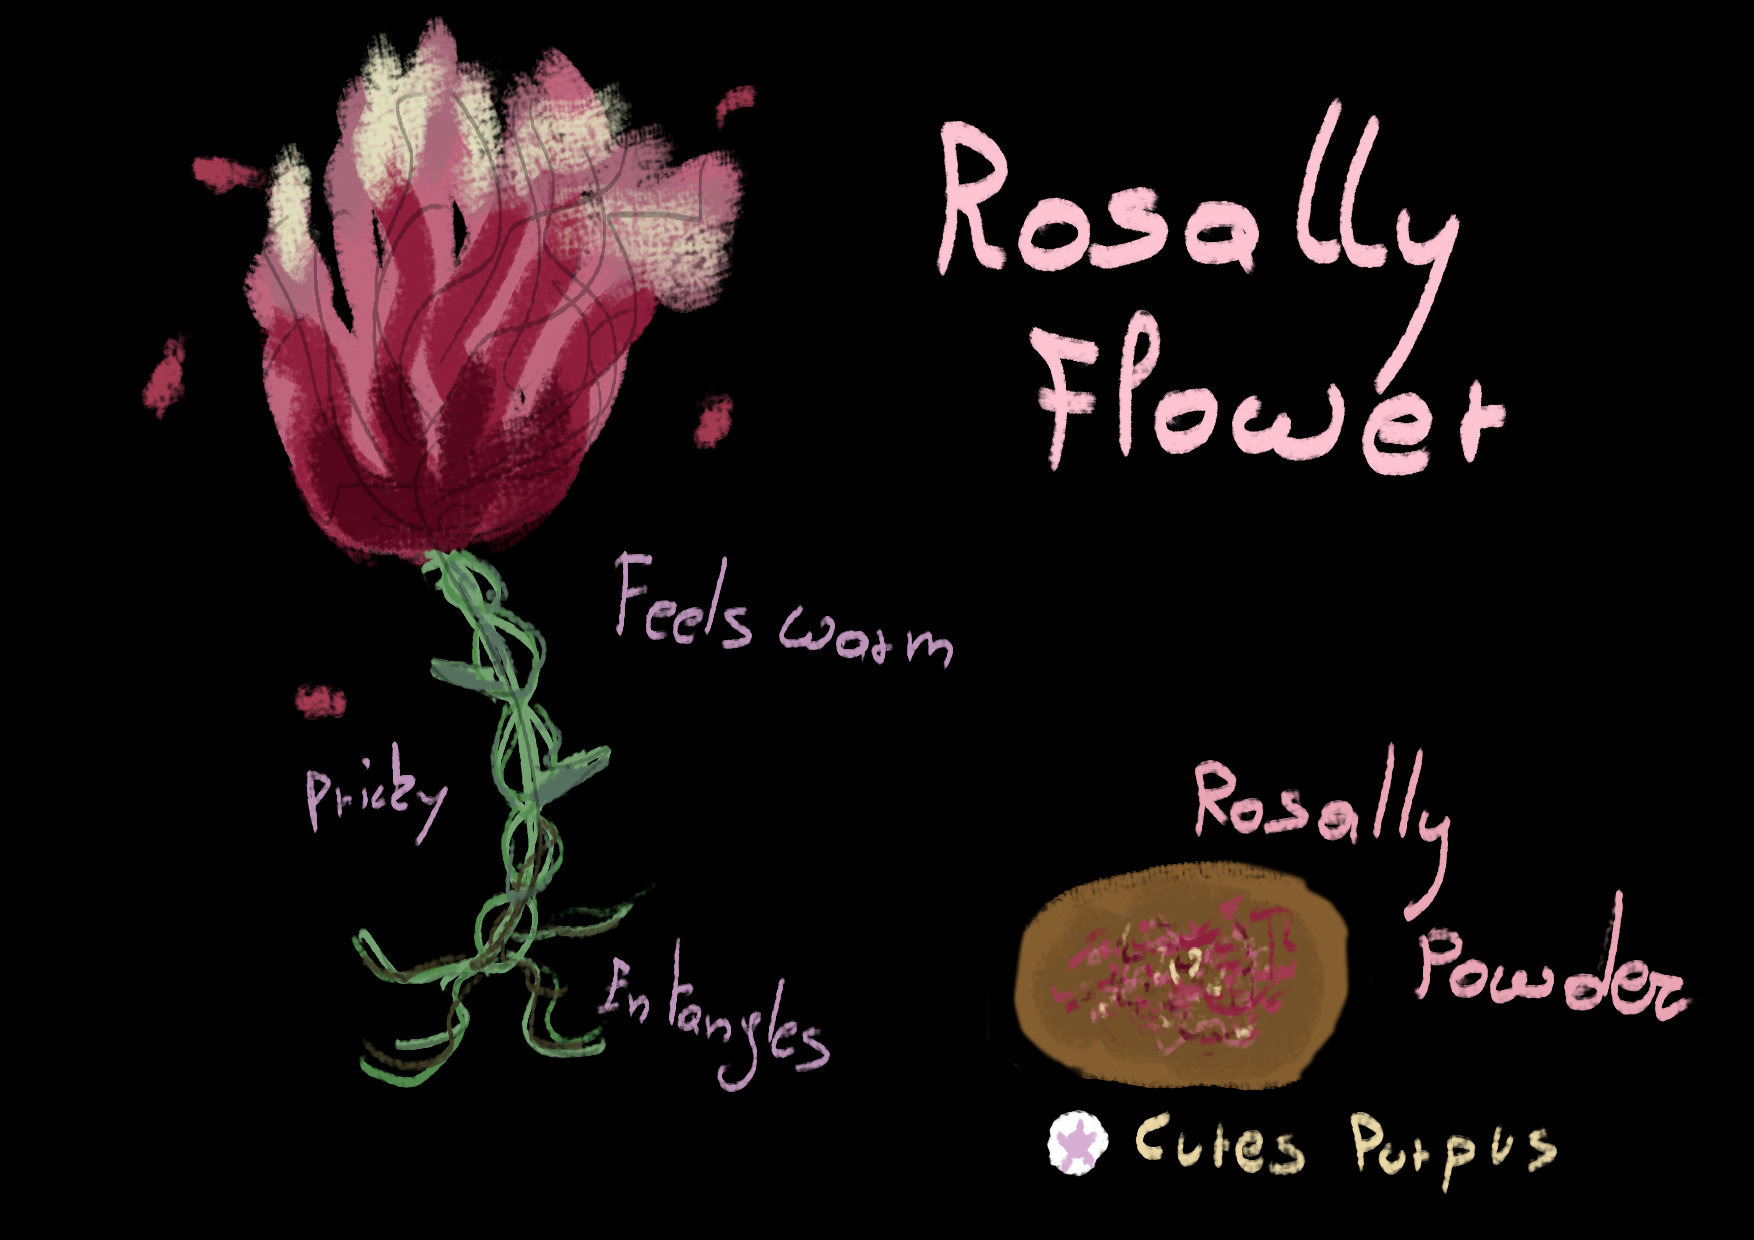 Rosally
Flower
Feels warm
Pricky
Entangles
Rosally
Powder
Cures Purpus